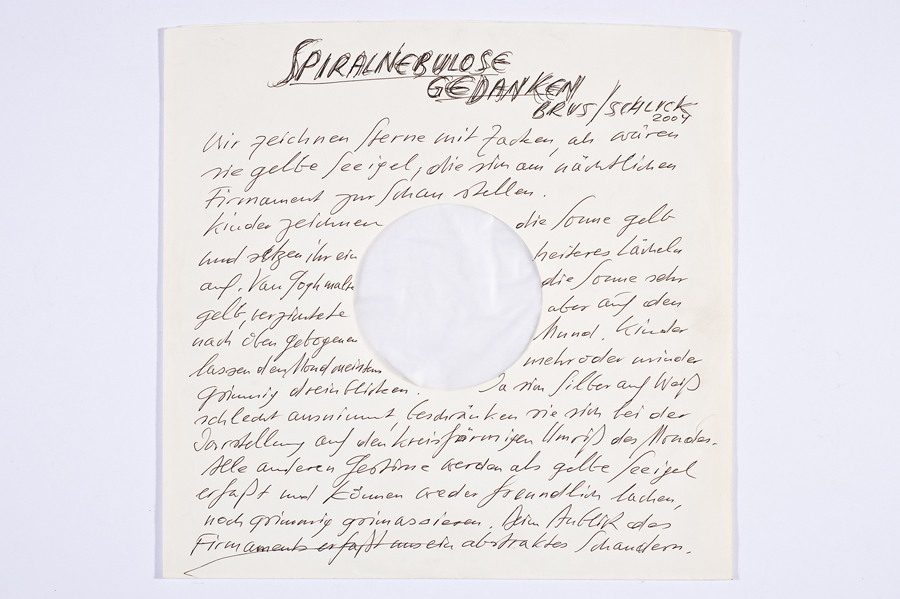 SPIRALNEBULOSE
GEDANKEN
BRUS/SCHLICK
2004
Wir zeichnen Sterne mit Zacken, als wären
sie gelbe Seeigel, die sich am nächtlichen
Firmament zur Schau stellen.
Kinder zeichnen die Sonne gelb
und setzen ihr ein heiteres Lächeln
auf. Van Gogh malte die Sonne sehr
gelb, verzichtete aber auf den
nach oben gebogenen Mund. Kinder
lassen den Mond meistens mehr oder minder
grimmig dreinblicken. Da sich Silber auf Weiß
schlecht ausnimmt, beschränken sie sich bei der
Darstellung auf den kreisförmigen Umriß des Mondes.
Alle anderen Gestirne werden als gelbe Seeigel
erfaßt und können weder freundlich lachen,
noch grimmig grimassieren. Beim Anblick des
Firmaments erfaßt uns ein abstraktes Schaudern.